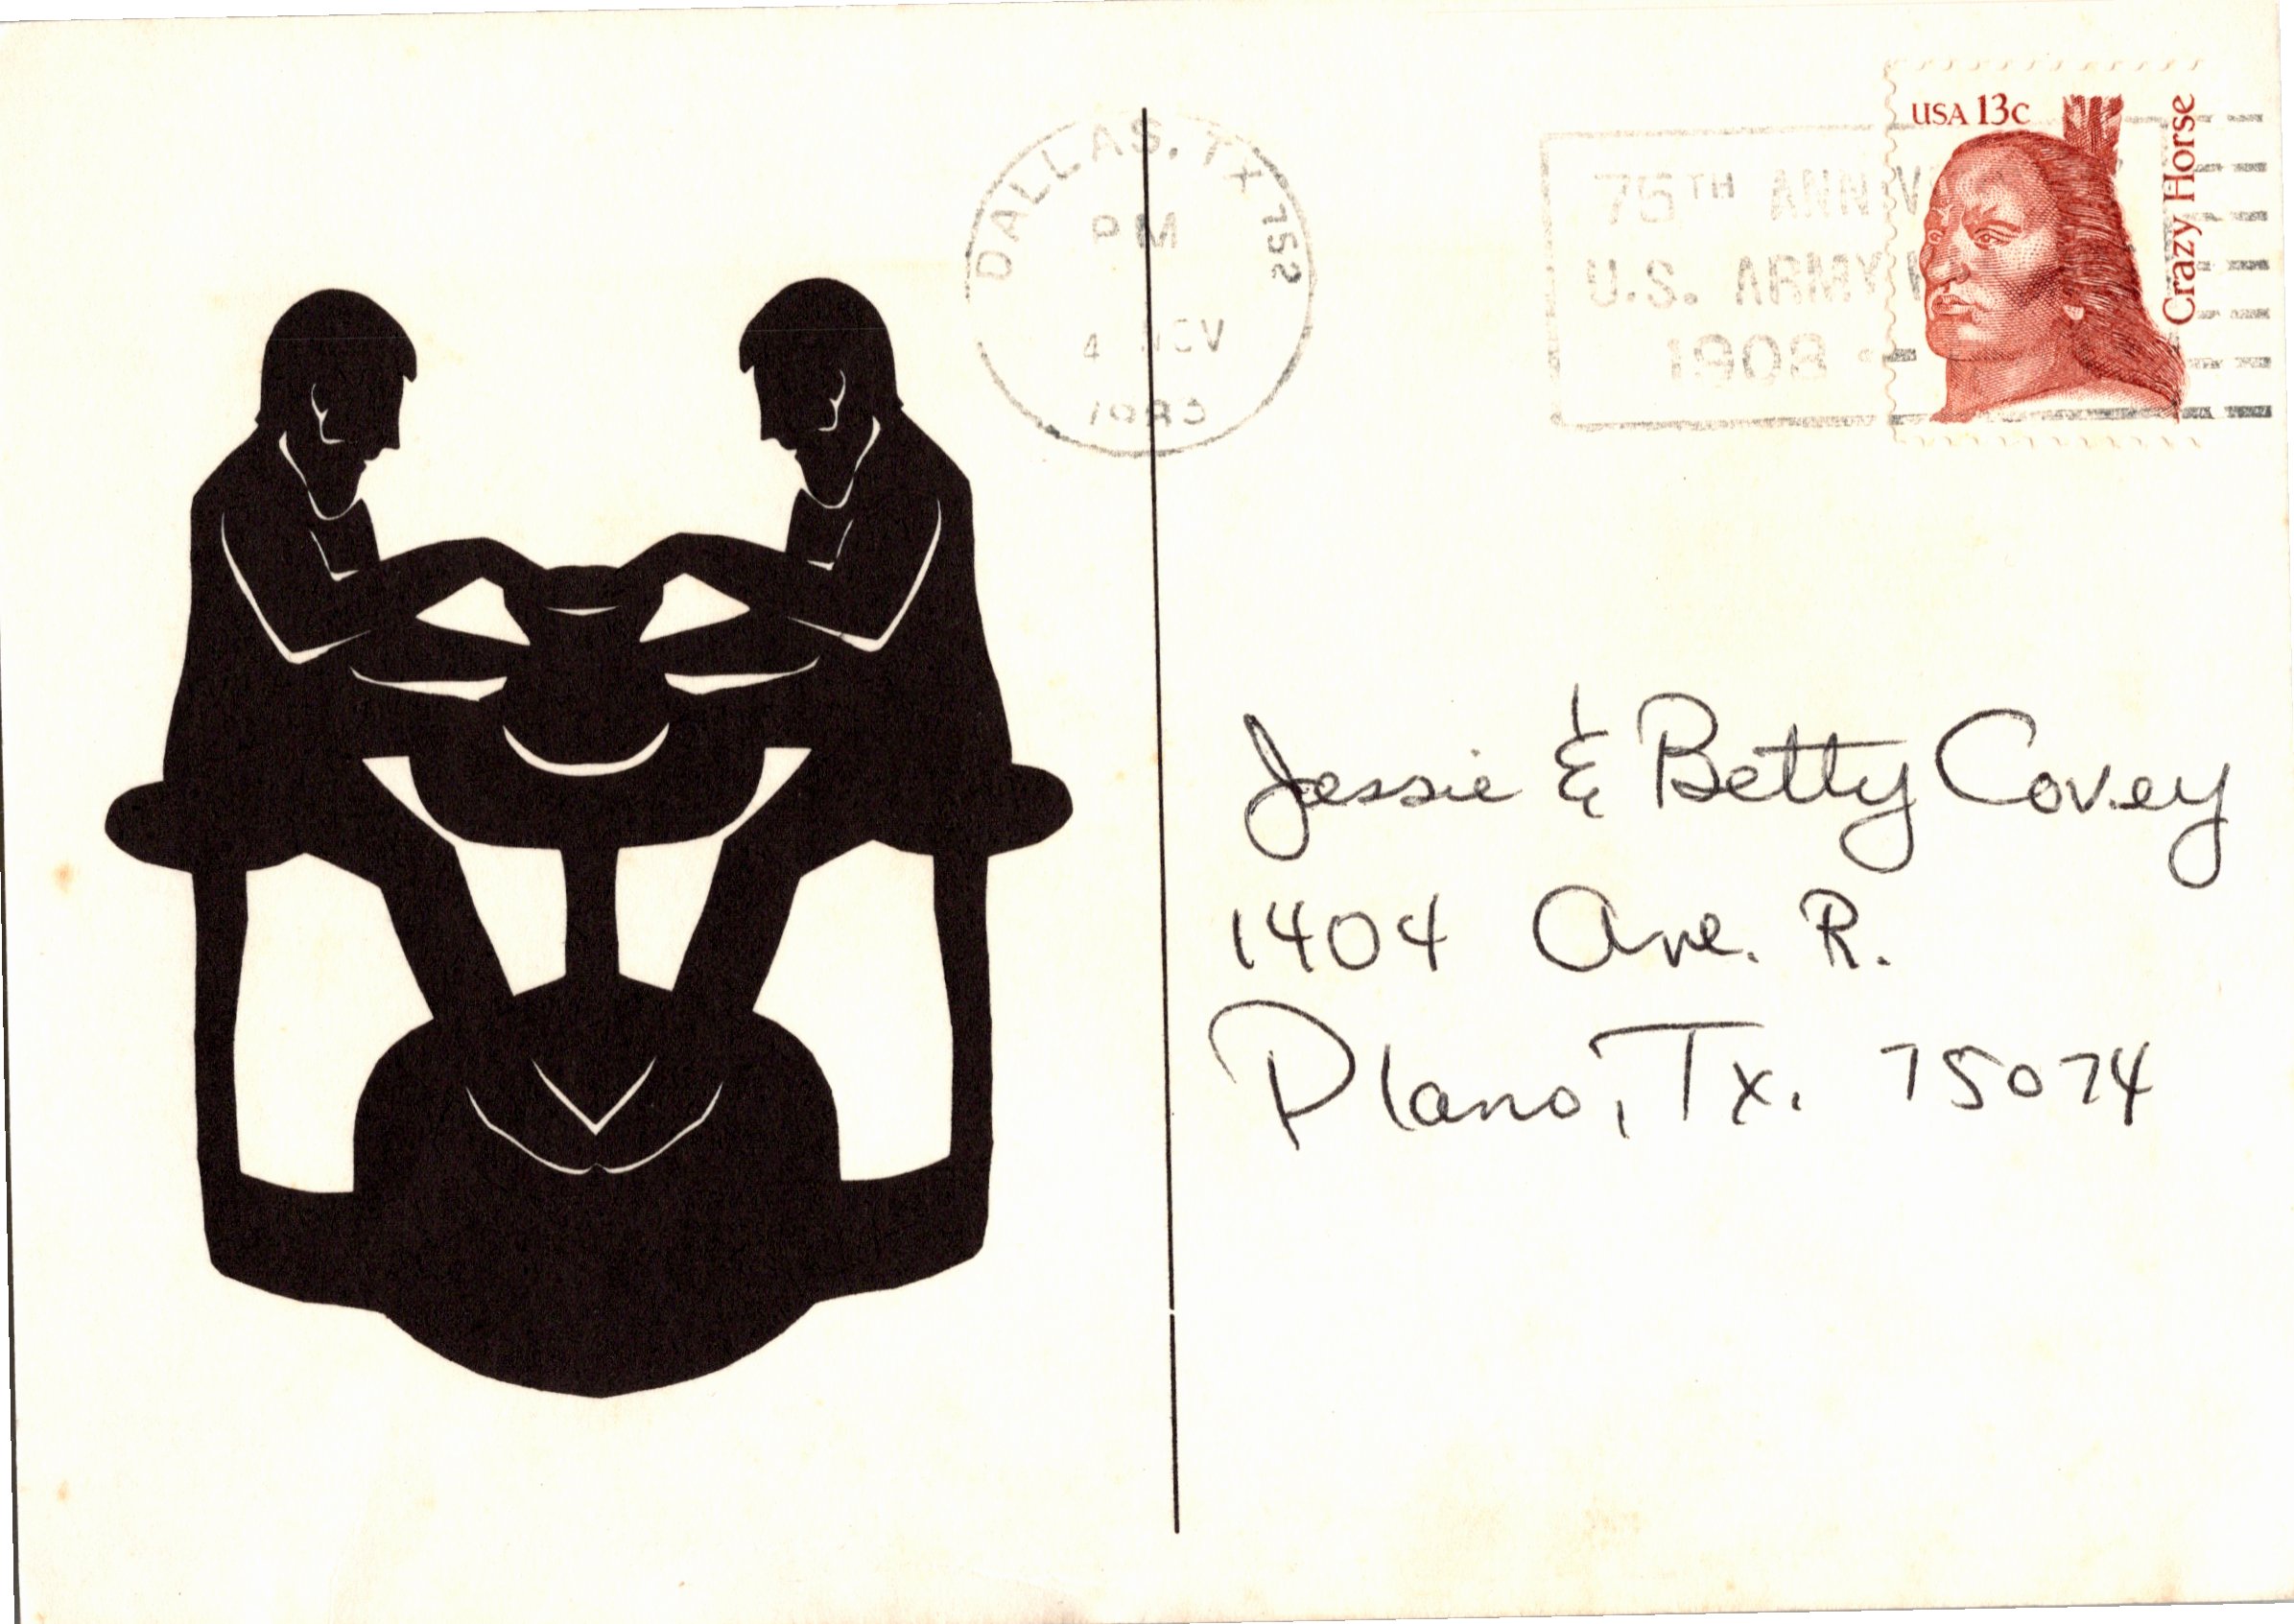 DALLAS, TX 752
PM
4 NOV
1983
75TH
U.S. ARMY
1908 -
USA 13c
Crazy Horse
Jessie & Betty Covey
1404 Ave. R.
Plano, Tx. 75074